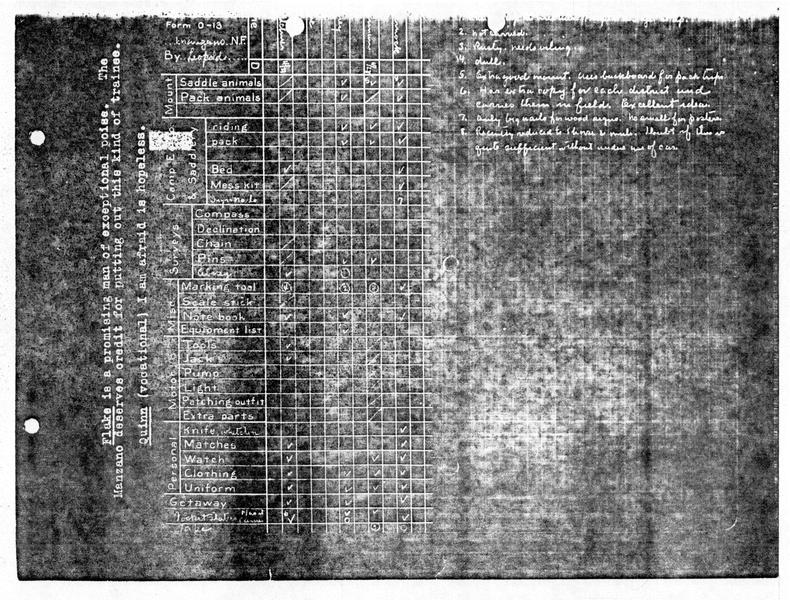 Flake is a promising man of exceptional poise. The
Manzano deserves credit for putting out this kind of trainee.
Quinn (vocational) I am afraid is hopeless.
Form O-13
Manzano N.F.
By Leopold
Mount
Saddle animals
Pack animals
Camp Eq.
& Saddle
riding
pack
Bed
Mess kit
Surveys
Compass
Declination
Chain
Pins
Misc.
Marking tool
Scale stick
Note book
Equipment list
Motor
Tools
Jack
Pump
Light
Patching outfit
Extra parts
Personal
Knife
Matches
Watch
Clothing
Uniform
Getaway
Tape
2. Not carried.
3. Rusty, needs oiling.
4. dull.
5. Extra good mount. Uses buckboard for pack trips
6. Has extra copy for each district and
carries them in field. Excellent idea.
7. Only big nails for wood signs. No small for posters
8. Recently reduced to 1 horse & mule. Doubt if this is
quite sufficient without undue use of car.